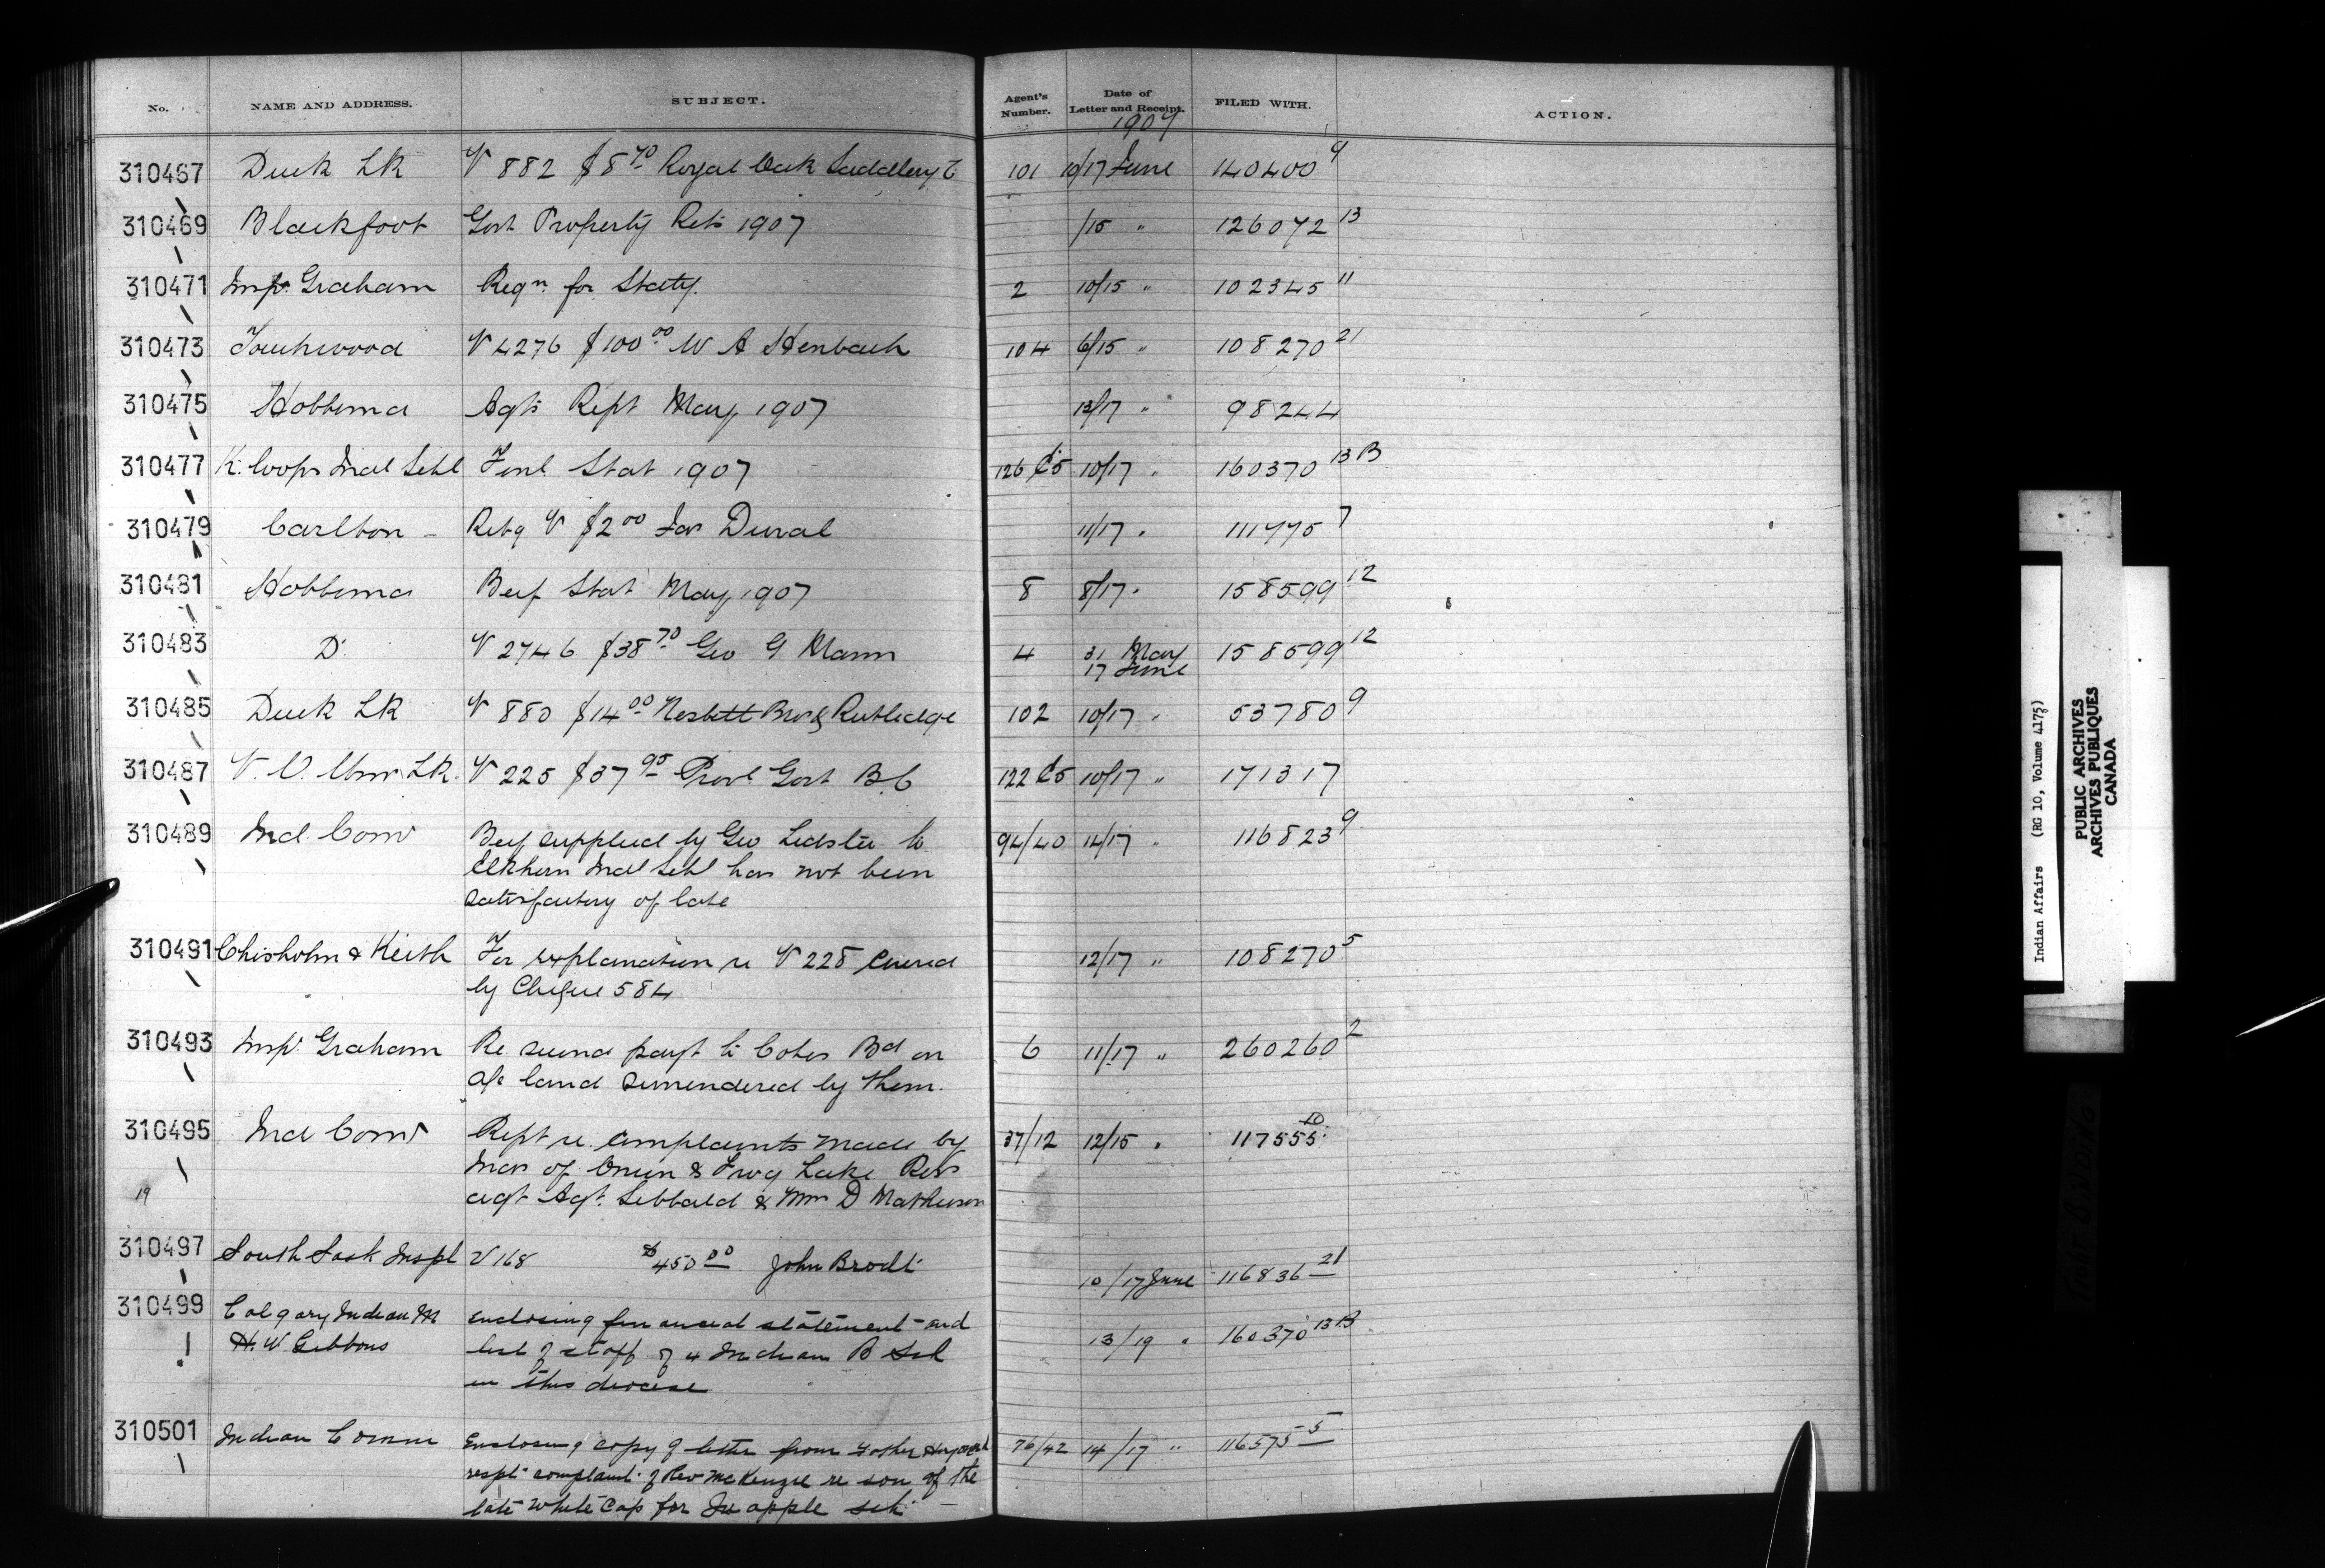 No. NAME AND ADDRESS. SUBJECT. Agent's Number. Date of Letter and Receipt. FILED WITH. ACTION.
1907
310467 Duck LK V 882 $8 70 Royal Oak Saddlery C 101 10/17 June 140400 9
310469 Blackfoot Govt Property Rets 1907 /15 " 126072 13
310471 Insp. Graham Reqn for Staty. 2 10/15 " 102345 11
310473 Touchwood V 4276 $100 00 W A Henbach 104 6/15 " 108270 21
310475 Hobbema Agts Rept May 1907 13/17 " 98244
310477 K. loops Indl Schl Finl Stat 1907 126 C5 10/17 " 160370 13 B
310479 Carlton Retg V $2 00 Jas Duval 11/17 " 111775 7
310481 Hobbema Beef Stat May 1907 8 8/17 " 158599 12
310483 D V 2746 $38 70 Geo G Mann 4 31 May 158599 12
17 June
310485 Duck LK V 880 $14 00 Nesbett Bro & Rutledge 102 10/17 " 53780 9
310487 V. V. LK. V 225 $37 95 Provl Govt B.C 122 C5 10/17 " 171317
310489 Ind. Comr Beef supplied by Geo Lidster to 94/40 14/17 " 116823 9
Elkhorn Indl Schl has not been
satisfactory of late
310491 Chisholm & Keith For explanation re V 228 covered 12/17 " 108270 5
by Cheque 584
310493 Insp. Graham Re second payt to Cotes Bd on 6 11/17 " 260260 2
a/c land surrendered by them.
310495 Ind Comr Rept re complaints made by 37/12 12/15 " 117555 10
Inds of Onion & Frog Lake Revs
19
agt Agt. Sibbald & Mr D Matheson
310497 South Sask Inspl V 168 $450 00 John Brodt 10/17 June 116836 21
310499 Calgary Indian M enclosing financial statement and 13/19 " 160370 13 B
H. W Gibbons list of staff of 4 Indian B Scl
in this diocese
310501 Indian Comm Enclosing copy of letter from Father 76/42 14/17 " 116575 5
respt complaint of Rev McKenzie re son of the
late White Cap for Qu apple sch
Indian Affairs (RG 10, Volume 4175)
PUBLIC ARCHIVES
ARCHIVES PUBLIQUES
CANADA